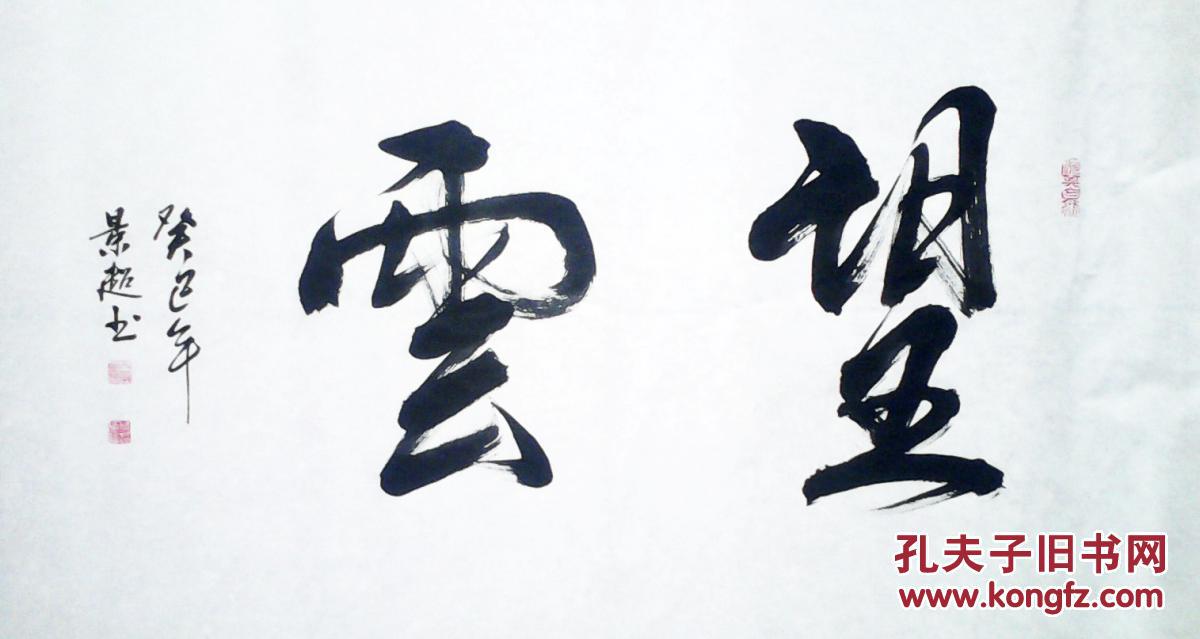 望雲
癸巳年
景超书
孔夫子旧书网
www.kongfz.com